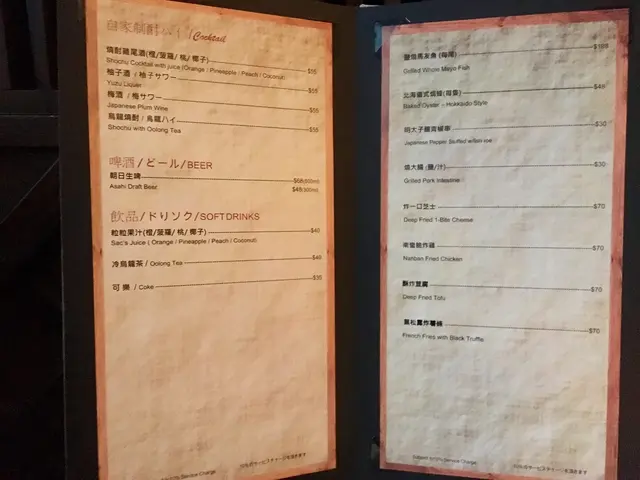 Cocktail
燒酎雞尾酒(橙/菠蘿/桃/椰子) $55
Shochu Cocktail with juice (Orange / Pineapple / Peach / Coconut)
柚子酒 / 柚子サワー $55
Yuzu Liquer
梅酒 / 梅サワー $55
Japanese Plum Wine
烏龍燒酎 / 烏龍ハイ $55
Shochu with Oolong Tea
啤酒/ビール/BEER
朝日生啤 $68(500ml)
Asahi Draft Beer $48(300ml)
飲品/ドリンク/SOFT DRINKS
粒粒果汁(橙/菠蘿/桃/椰子) $40
Sac's Juice ( Orange / Pineapple / Peach / Coconut)
冷烏龍茶 / Oolong Tea $48
可樂 / Coke $35
Service Charge
鹽燒馬友魚 (每尾) $168
Grilled Whole Mayo Fish
北海道式焗蠔(每隻) $48
Baked Oyster - Hokkaido Style
明太子釀青椒串 $30
Japanese Pepper Stuffed w/fish roe
燒大腸 (鹽/汁) $30
Grilled Pork Intestine
炸一口芝士 $70
Deep Fried 1-Bite Cheese
南蠻脆炸雞 $70
Nanban Fried Chicken
酥炸豆腐 $70
Deep Fried Tofu
黑松露炸薯條 $70
French Fries with Black Truffle
Subject to 10% Service Charge
10%サービスチャージを頂きます